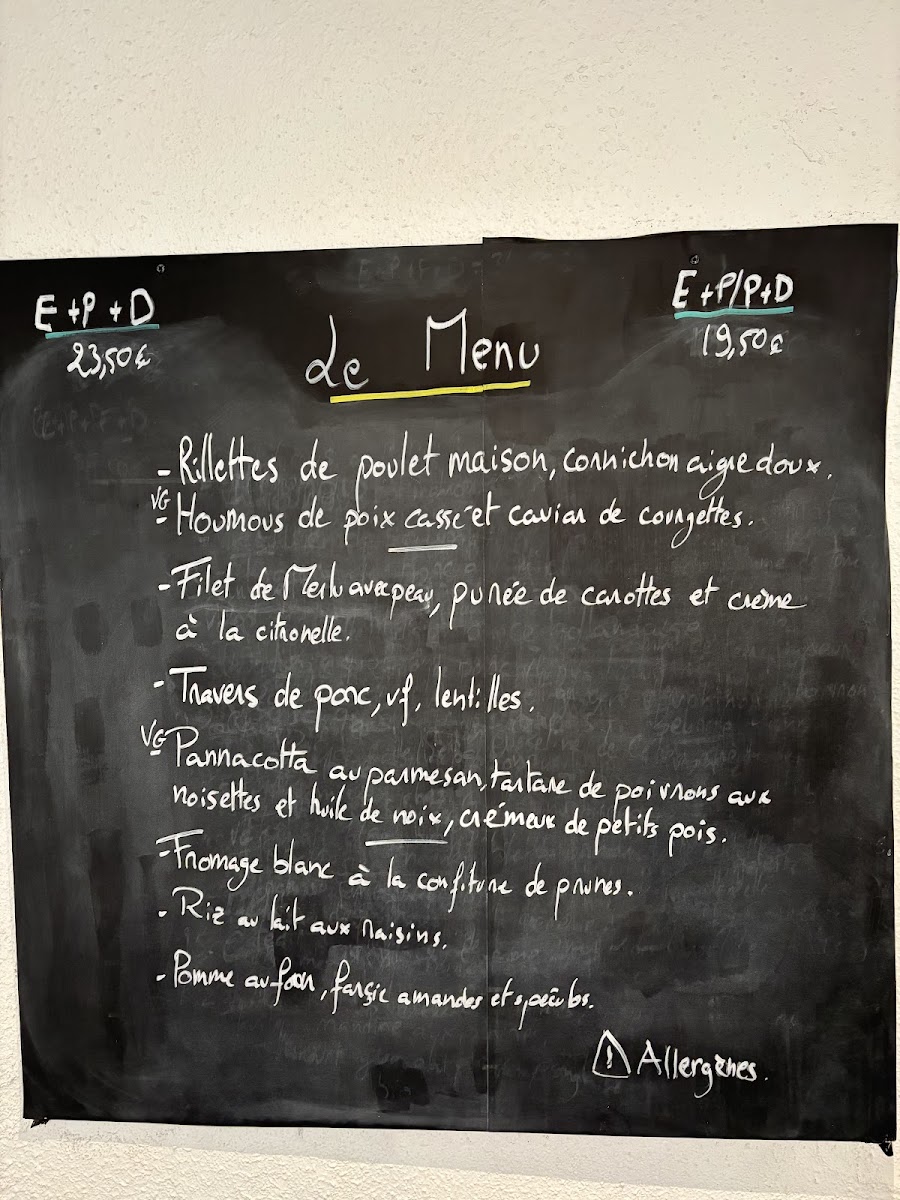 E+P+D
23,50€
Le Menu
E+P/P+D
19,50€
- Rillettes de poulet maison, cornichon aigre doux.
VG
- Houmous de poix cassé et caviar de courgettes.
- Filet de Merlu avec peau, purée de carottes et crème
à la citronelle.
- Travers de porc, vf, lentilles.
VG
Pannacotta au parmesan, tartare de poivrons aux
noisettes et huile de noix, crémeux de petits pois.
- Fromage blanc à la confiture de prunes.
- Riz au lait aux raisins.
- Pomme au four, farçie amandes et
⚠ Allergènes.